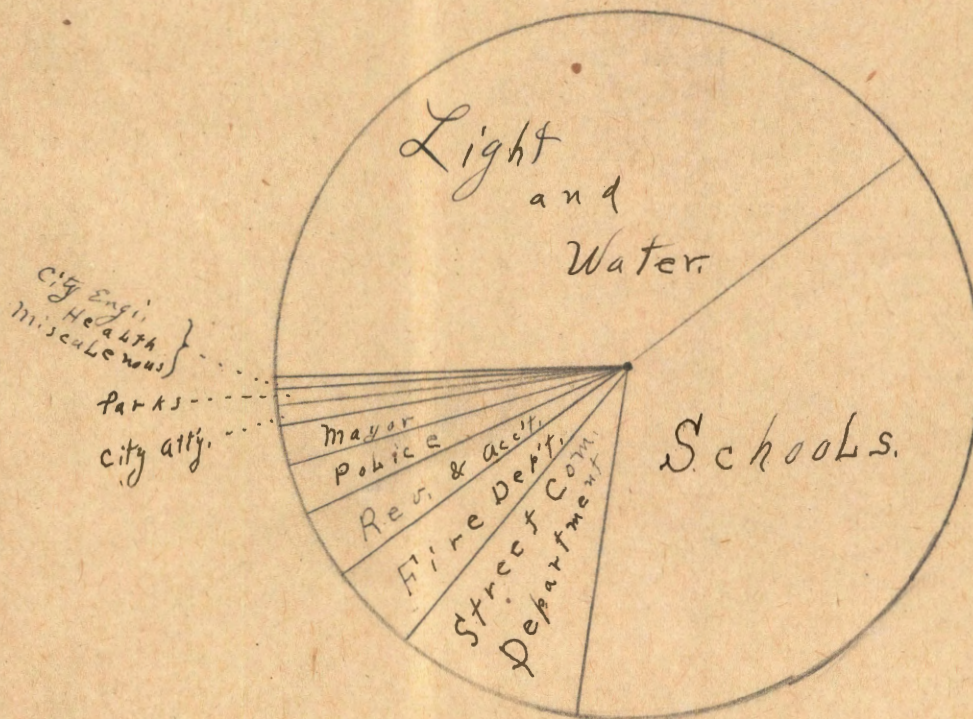 Light
and
Water.
City Engi.
Health
Misculenous
Parks
City Atty.
Mayor
Police
Rev. & Acc't.
Fire Dep't.
Street Com.
Department
Schools.